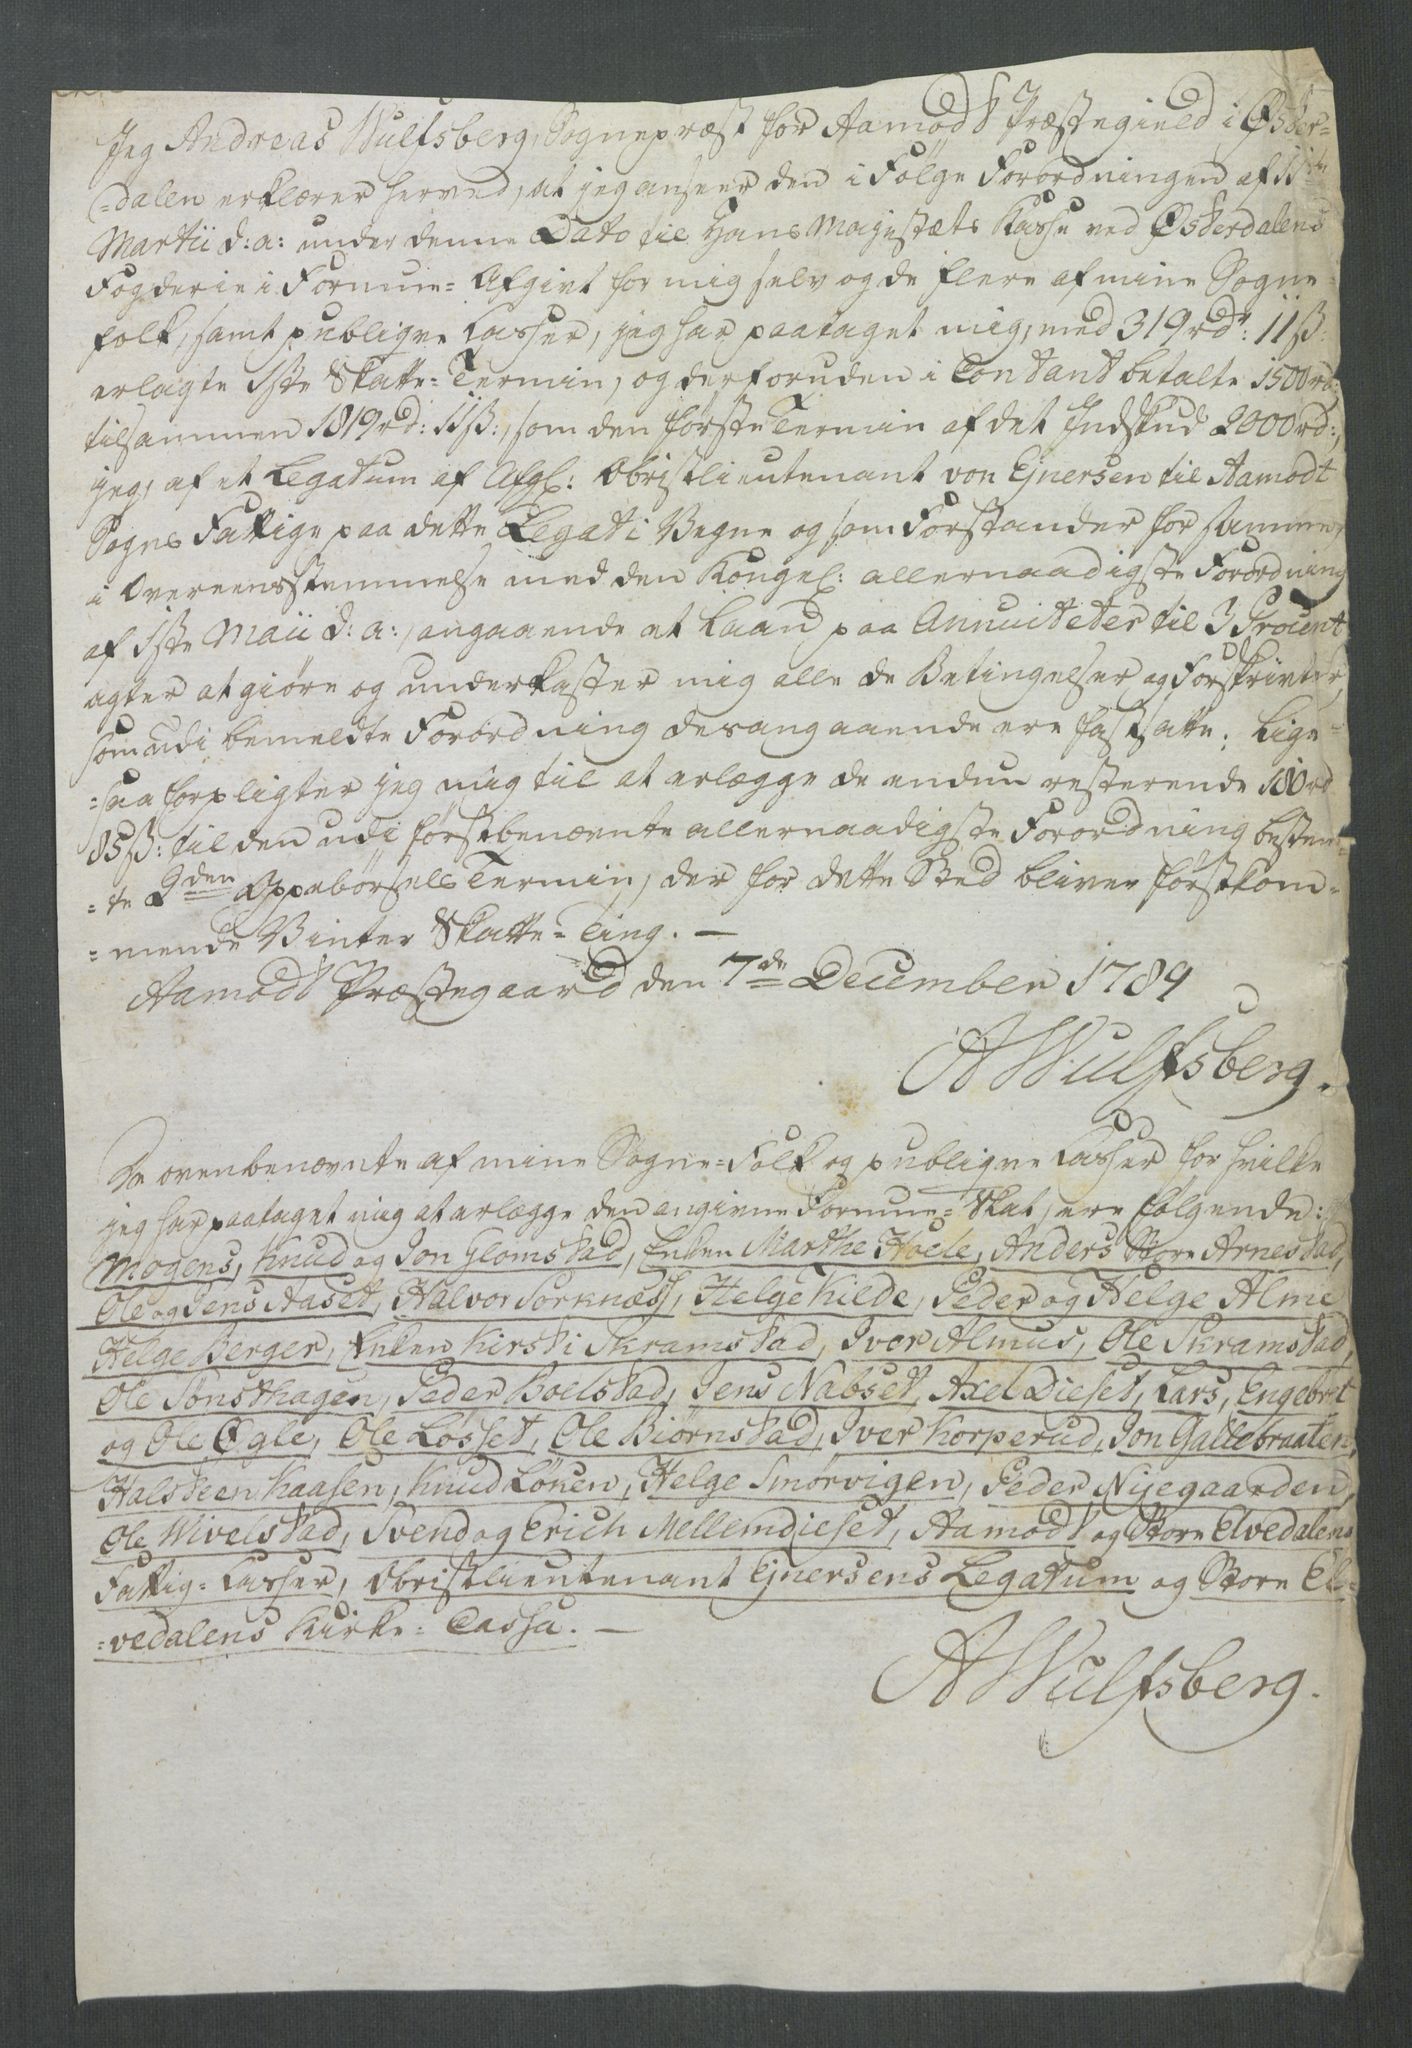 Jeg Andreas Wulfsberg, Sognepræst for Aamodt Præstegield i Øster-
=dalen erklærer herved, at jeg anseer den i Følge Forordningen af 11te
Martii d: a: under denne Dato til Hans Mayestæts Kasse ved Østerdalens
Fogderie i Formue= Afgivt for mig selv og de flere af mine Sogne=
folk, samt publiqve Casser, jeg har paataget mig, med 319 rdr: 11ß:
erlagte 1ste Skatte= Termin, og derforuden i Contant betalte 1500 rd:
tilsammen 1819 rd: 11ß:, som den første Termin af det Indskud 2000 rd:,
jeg, af et Legatum af Afg: Obristlieutenant von Ejnersen til Aamodt
Sogns Fattige paa dette Legat i Vegne og som Forstander for samme,
i Overeensstemmelse med den Kongel: allernaadigste Forordning
af 1ste Maii d: a:, angaaende et Laan paa Annuiteter til 3 Procent
agter at giøre og underkaster mig alle de Betingelser og Forskrivter,
som udi bemeldte Forordning desangaaende ere fastsatte; Lige=
=saa forpligter jeg mig til at erlægge de endnu resterende 180 rd
85ß: til den udi førstbenævnte allernaadigste Forordning bestem=
=te 2den Oppebørsels Termin, der for dette Sted bliver førstkom=
=mende Vinter Skatte= Ting. —
Aamodt Præstegaard den 7de December 1789
AWulfsberg.
De ovenbenævnte af mine Sogne=Folk og publiqve Casser for hvilke
jeg har paataget mig at erlægge den angivne Formue= Skat, ere følgende:
Mogens, Knud og Jon Glomstad, Enken Marthe Hoele, Anders Store Arnestad,
Ole og Jens Aaset, Halvor Sorknæss, Helge Kilde, Peder og Helge Alme
Helge Berger, Enken Kirsti Skramstad, Iver Almus, Ole Skramstad,
Ole Sønsthagen, Peder Boelstad, Jens Nabset, Axel Dieset, Lars, Engebret
og Ole Øgle, Ole Løsset, Ole Biørnstad, Iver Korperud, Jon Gallebraaten,
Halsteen Kaasen, Knud Løken, Helge Smørvigen, Peder Nijegaarden,
Ole Wivelstad, Svend og Erich Mellemdieset, Aamodt og Store Elvedalens
Fattig= Casser, Obristlieutenant Ejnersens Legatum og Store El=
=vedalens Kirke= Cassa. —
AWulfsberg.